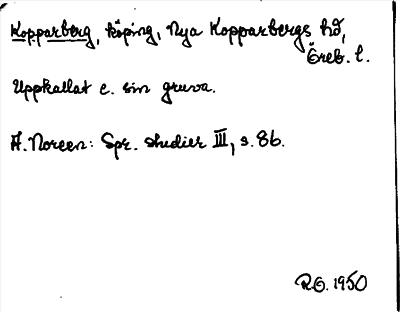 Kopparberg, köping, Nya Kopparbergs hd,
Öreb. l.
Uppkallat e. sin gruva.
A. Noreen: Spr. studier III, s. 86.
R.O. 1950